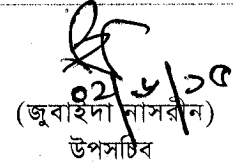 ০২/৬/১৫
(জুবাইদা নাসরীন)
উপসচিব